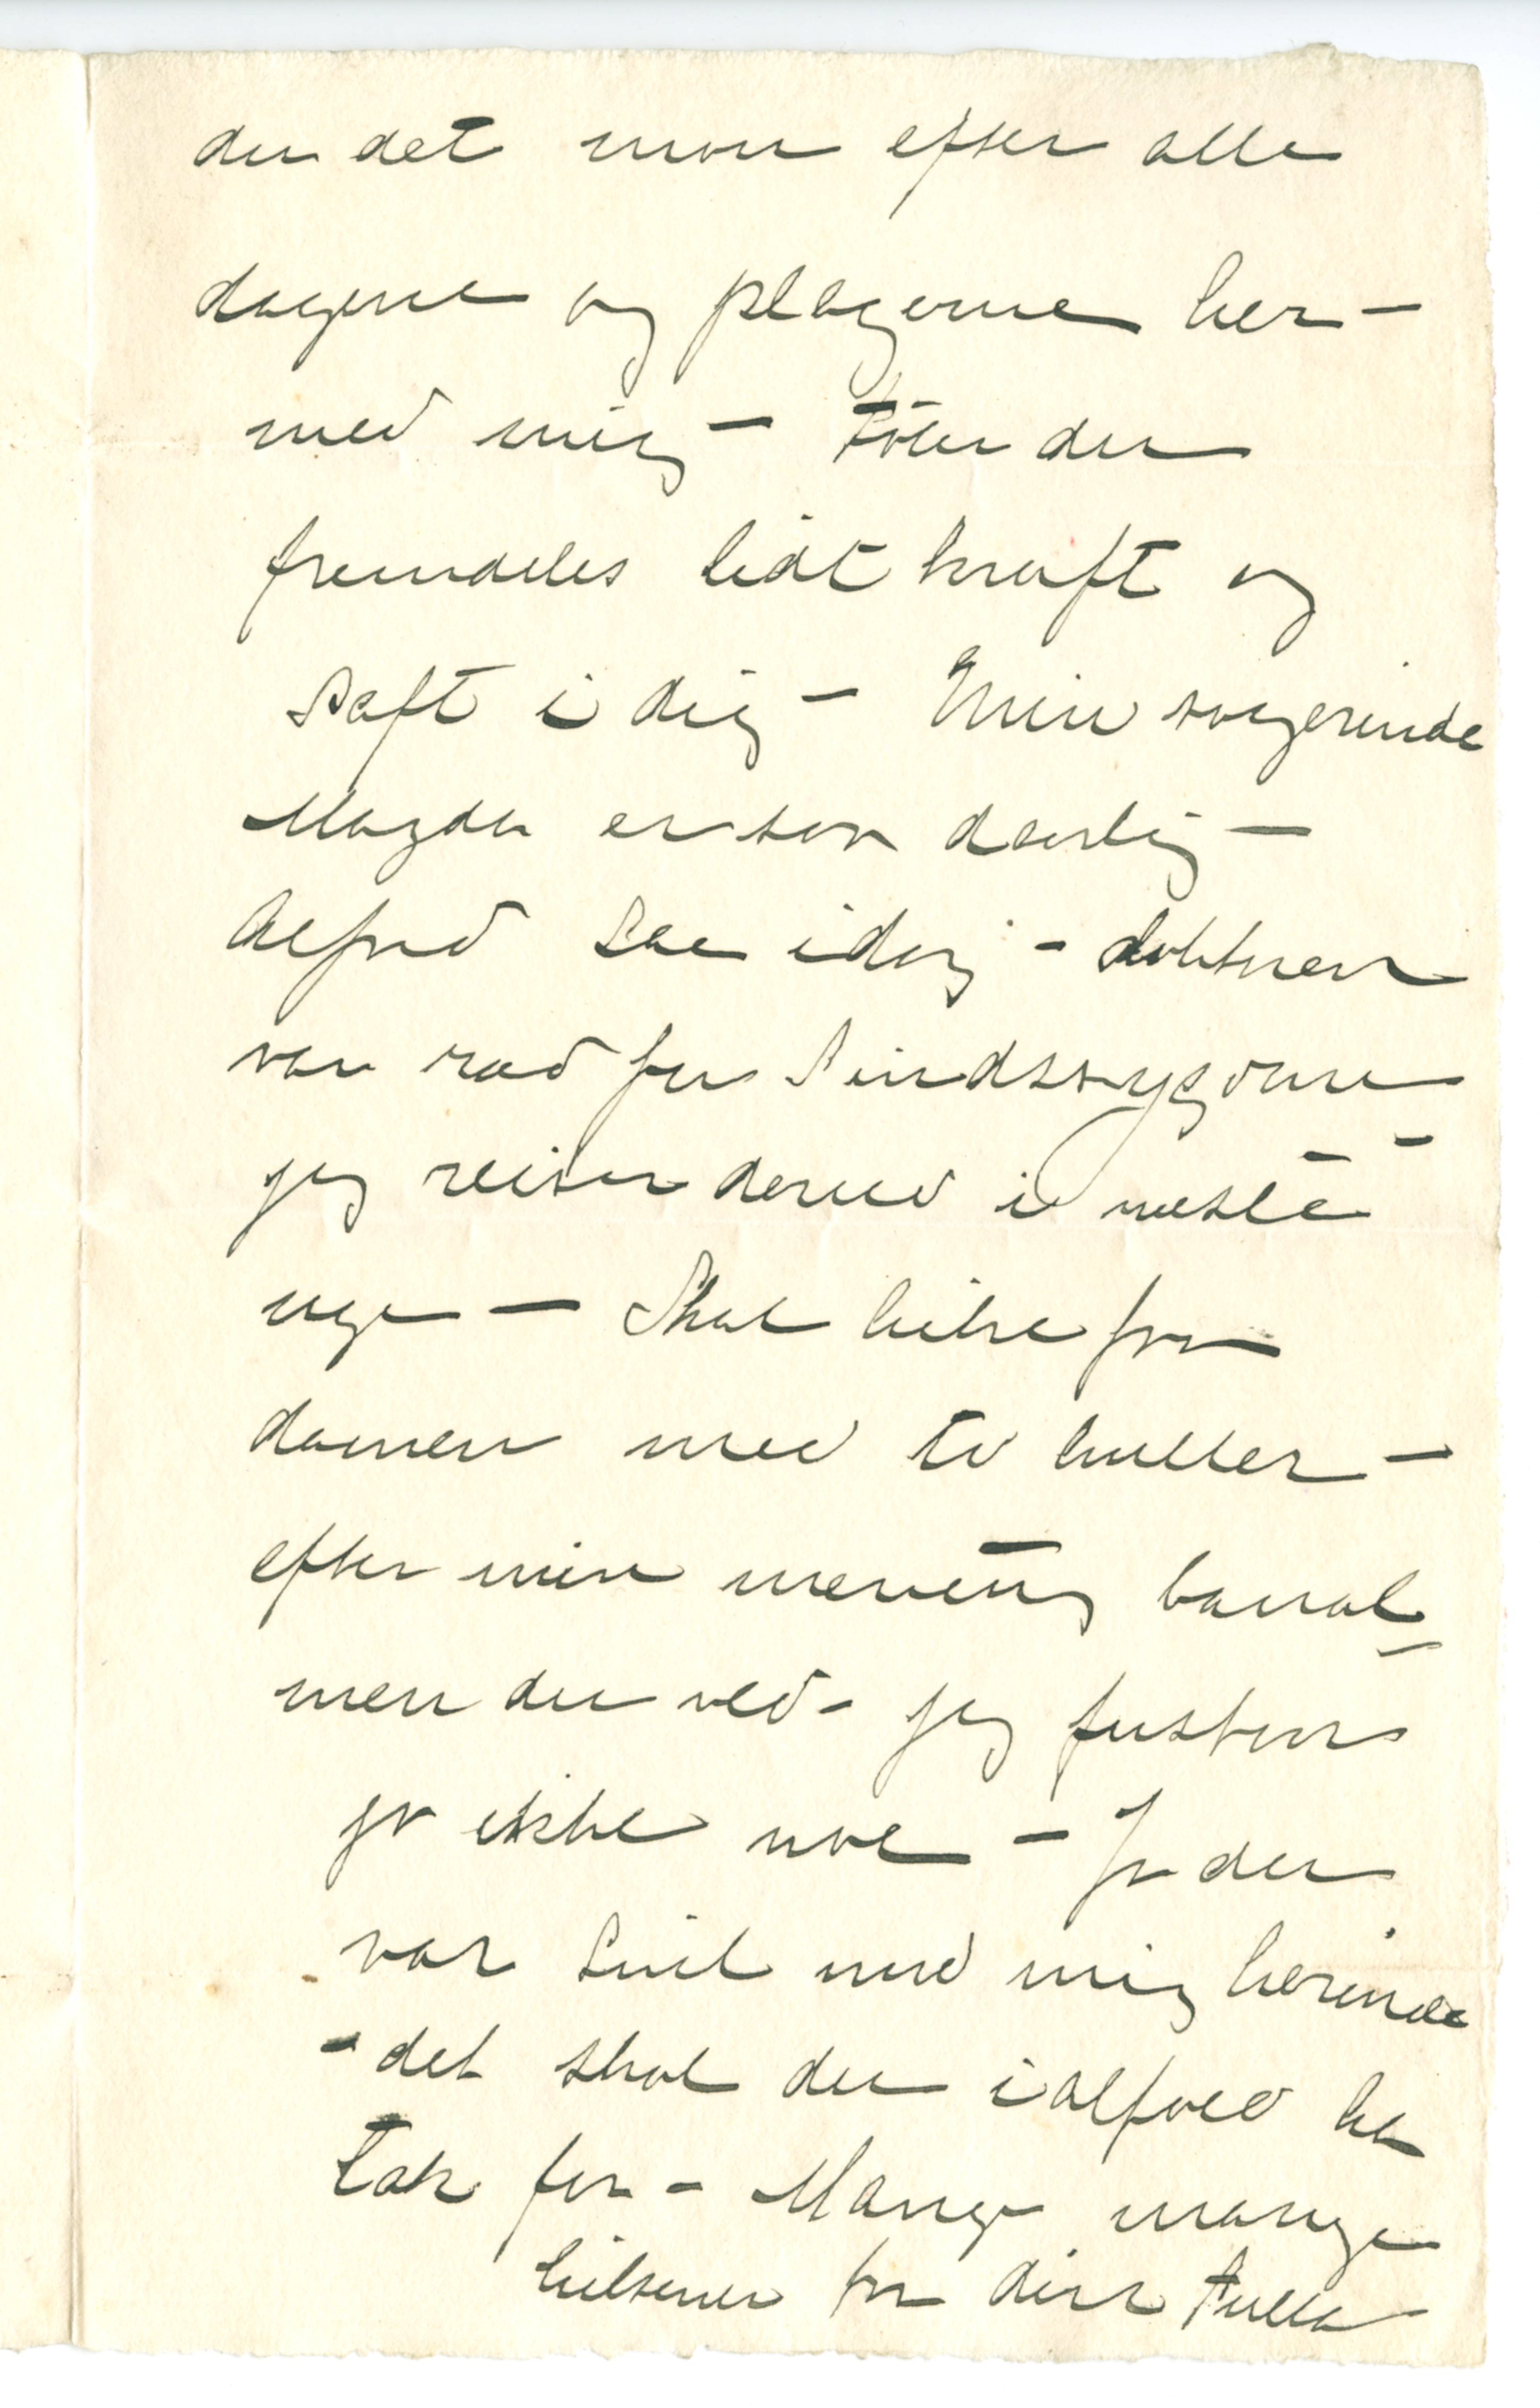 du det mon efter alle
dagene og plagerne her –
med mig – Föler du
fremdeles lidt kraft og
saft i dig – Min svigerinde
Magda er saa daarlig –
Alfred saa idag – doktoren
var ræd for Sindssygdom –
jeg reiser derned i næste
uge – Skal hilse fra
damen med to huller –
efter min mening banal –
men du ved – jeg
ja ikke noe – Ja du
var snil med mig herinde
– det skal du ialfald ha
tak for – Mange mange
hilsener fra din Tulla